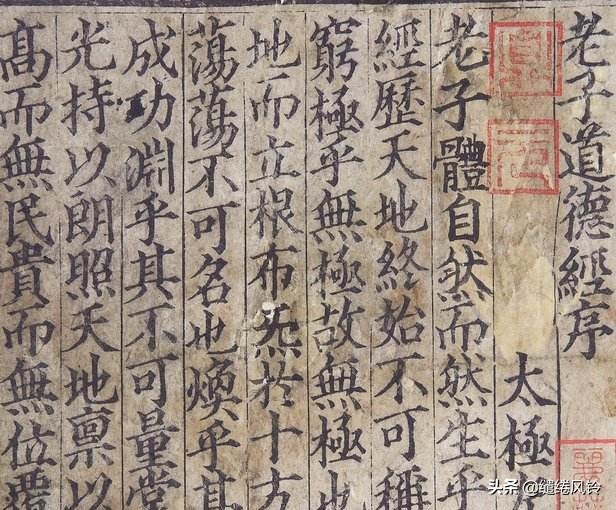 老子道德經序
太極
老子體自然而然生乎
經歷天地終始不可稱
窮極乎無極故無極也
地而立根布炁於十方
蕩蕩不可名也煥乎其
成功淵乎其不可量堂
光持以朗照天地稟以
高而無民貴而無位覆
头条 @缱绻风铃